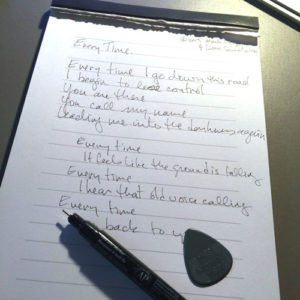 Every Time
Every time I go down this road
I begin to lose control
You are there
You call my name
Leading me into the darkness again
Every time
It feels like the ground is falling
Every time
I hear that old voice calling
Every time
back to